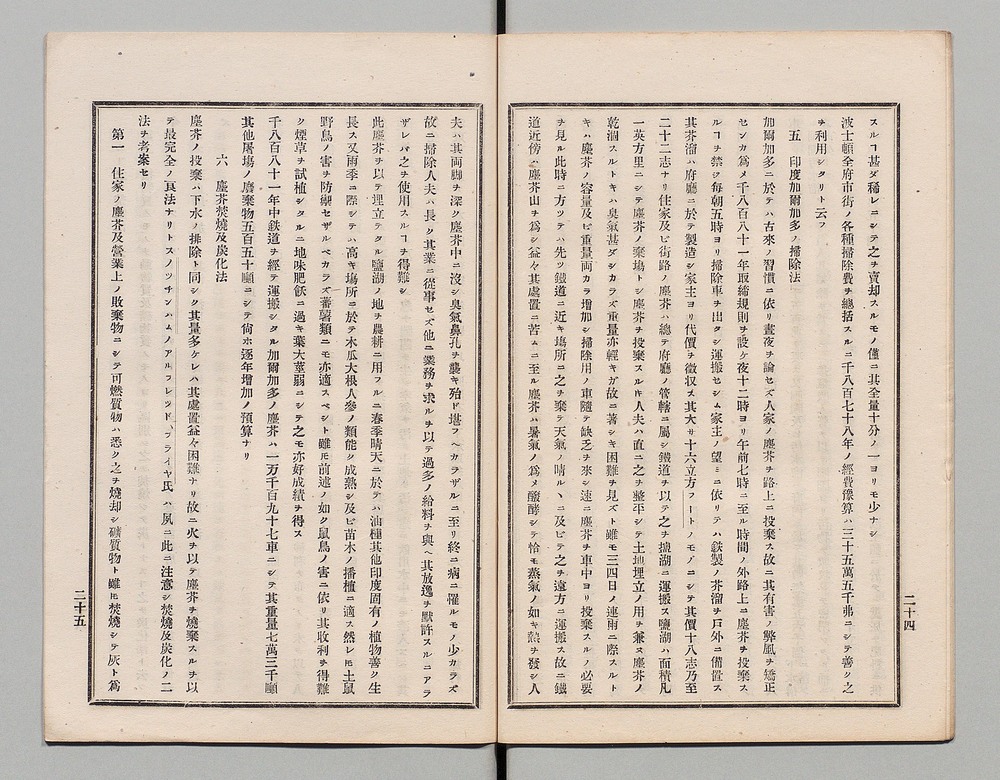 スルヿ甚ダ稀レニシテ之ヲ賣却スルモノ僅ニ其全量十分ノ一ヨリモ少ナシ
波士頓全府市街ノ各種掃除費ヲ總括スルニ千八百七十八年ノ經費豫算ハ三十五萬五千弗ニシテ善ク之
ヲ利用シタリト云フ
五 印度加爾加多ノ掃除法
加爾加多ニ於テハ古來ノ習慣ニ依リ晝夜ヲ論セズ人家ノ塵芥ヲ路上ニ投棄ス故ニ其有害ノ弊風ヲ矯正
センガ爲メ千八百八十一年取締規則ヲ設ケ夜十二時ヨリ午前七時ニ至ル時間ノ外路上ニ塵芥ヲ投棄ス
ルヿヲ禁ジ每朝五時ヨリ掃除車ヲ出タシ運搬セシム家主ノ望ミニ依リテハ鉄製ノ芥溜ヲ戶外ニ備置ス
其芥溜ハ府廳ニ於テ製造シ家主ヨリ代價ヲ徵収ス其大サ十六立方フートノモノニシテ其價十八志乃至
二十二志ナリ住家及ビ街路ノ塵芥ハ總テ府廳ノ管轄ニ屬シ鐵道ヲ以テ之ヲ鹽湖ニ運搬ス鹽湖ハ面積凡
一英方里ニシテ塵芥ノ棄塲トシ塵芥ヲ投棄スルキ人夫ハ直ニ之ヲ整平シテ土地埋立ノ用ヲ兼ヌ塵芥ノ
乾涸スルトキハ臭氣甚ダシカラズ重量亦輕キガ故ニ著シキ困難ヲ見ズト雖モ三四日ノ連雨ニ際スルト
キハ塵芥ノ容量及ビ重量両カラ增加シ掃除用ノ車隨テ缺乏ヲ來シ速ニ塵芥ヲ車中ヨリ投棄スルノ必要
ヲ見ル此時ニ方ツテハ先ヅ鐵道ニ近キ塲所ニ之ヲ棄テ天氣ノ晴ルヽニ及ビテ之ヲ遠方ニ運搬ス故ニ鐵
道近傍ハ塵芥山ヲ爲シ益々其處置ニ苦ムニ至ル塵芥ハ暑氣ノ爲メ醱酵シテ恰モ蒸氣ノ如キ熱ヲ發シ人
二十四
夫ハ其両脚ヲ深ク塵芥中ニ沒シ臭氣鼻孔ヲ襲キ殆ド堪フヘカラザルニ至リ終ニ病ニ罹ルモノ少カラズ
故ニ掃除人夫ハ長ク其業ニ從事セズ他ニ業務ヲ求ルヲ以テ過多ノ給料ヲ與ヘ其放逸ヲ默許スルニアラ
ザレバ之ヲ使用スルヿヲ得難シ
此塵芥ヲ以テ埋立テタル鹽湖ノ地ヲ農耕ニ用フルニ春季晴天ニ於テハ油種其他印度固有ノ植物善ク生
長ス又雨季ニ際シテハ高キ塲所ニ於テ木瓜大根人參ノ類能ク成熟シ及ビ苗木ノ播植ニ適ス然レ𪜈土鼠
野鳥ノ害ヲ防禦セザルベカラズ蕃薯類ニモ亦適スベシト雖𪜈前述ノ如ク鼠鳥ノ害ニ依リ其收利ヲ得難
ク煙草ヲ試植シタルニ地味肥飫ニ過キ葉大莖弱ニシテ之モ亦好成績ヲ得ス
千八百八十一年中鉄道ヲ經テ運搬シタル加爾加多ノ塵芥ハ一万千百九十七車ニシテ其重量七萬三千噸
其他屠塲ノ廢棄物五百五十噸ニシテ尙ホ逐年增加ノ預算ナリ
六 塵芥焚燒及炭化法
塵芥ノ投棄ハ下水ノ排除ト同シク其量多ケレハ其處置益々困難ナリ故ニ火ヲ以テ塵芥ヲ燒棄スルヲ以
テ最完全ノ良法ナリトスノッチンハムノアルフレッドフライヤ氏ハ夙ニ此ニ注意シ焚燒及炭化ノ二
法ヲ考案セリ
第一 住家ノ塵芥及營業上ノ敗棄物ニシテ可燃質物ハ悉ク之ヲ燒却シ礦質物ト雖𪜈焚燒シテ灰ト爲
二十五